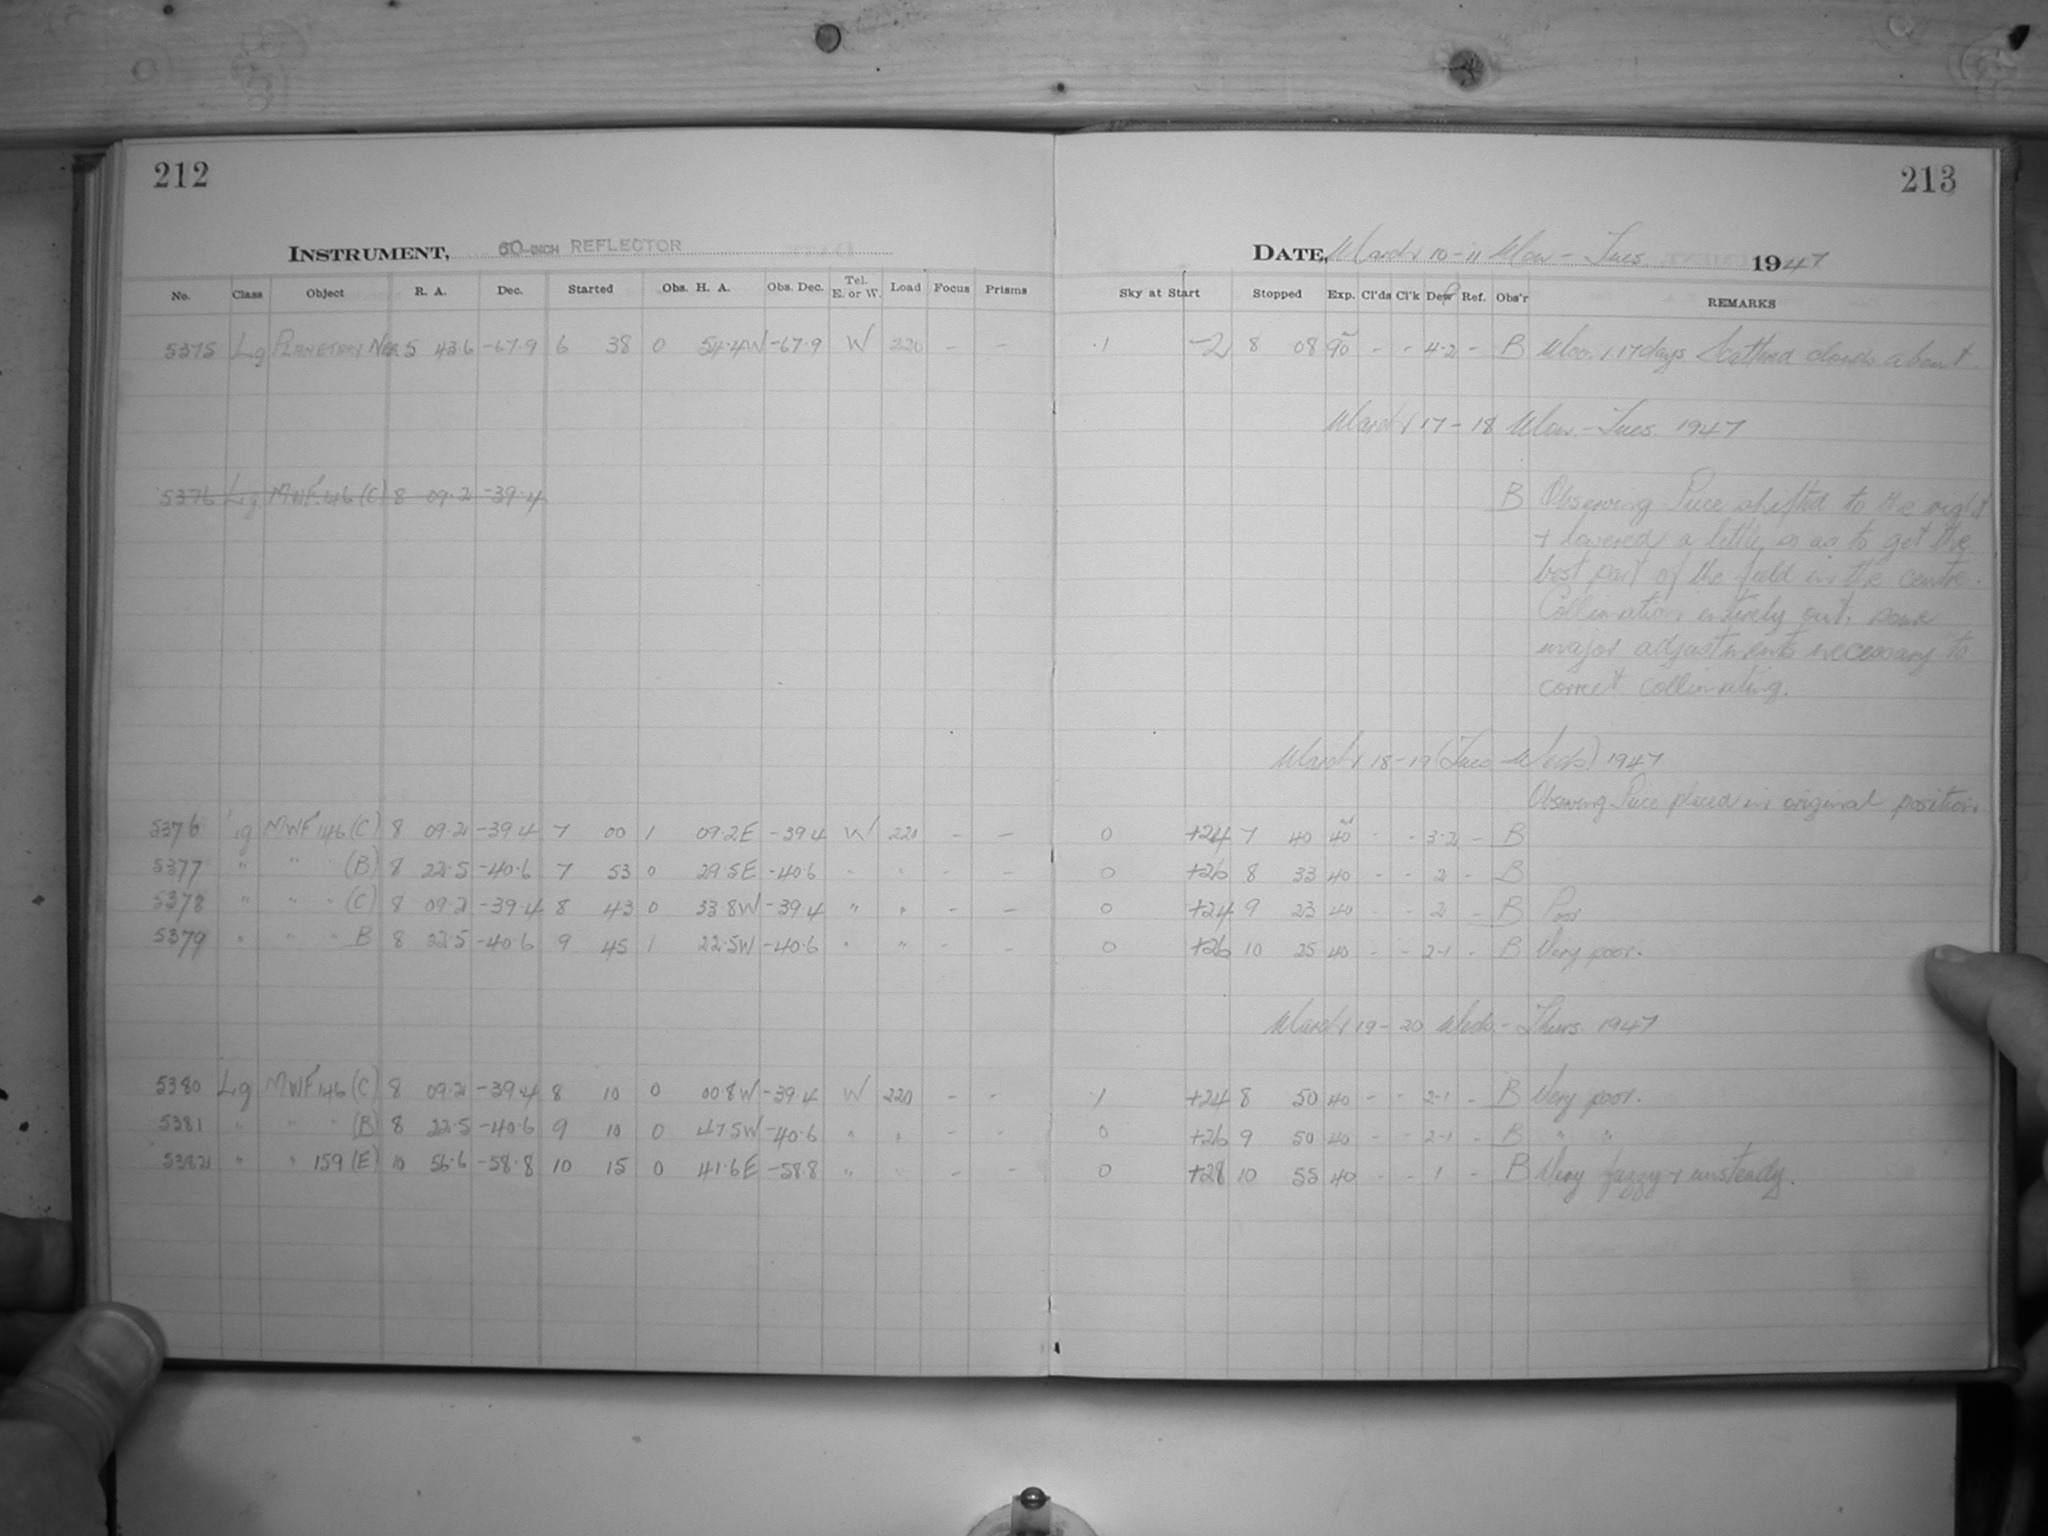 212
INSTRUMENT, 60-INCH REFLECTOR
No. Class Object R. A. Dec. Started Obs. H. A. Obs. Dec. Tel. E. or W. Load Focus Prisms
5375 Lg PLANETARY NEB. 5 43.6 -67.9 6 38 0 54.4W -67.9 W 220 - -
5376 Lg MWF 146 (C) 8 09.2 -39.4
5376 Lg MWF 146 (C) 8 09.2 -39.4 7 00 1 09.2E -39.4 W 220 - -
5377 " " (B) 8 22.5 -40.6 7 53 0 29.5E -40.6 " " - -
5378 " " " (C) 8 09.2 -39.4 8 43 0 33.8W -39.4 " " - -
5379 " " " B 8 22.5 -40.6 9 45 1 22.5W -40.6 " " - -
5380 Lg MWF 146 (C) 8 09.2 -39.4 8 10 0 00.8W -39.4 W 220 - -
5381 " " " (B) 8 22.5 -40.6 9 10 0 47.5W -40.6 " " - -
5382 " " 159 (E) 10 56.6 -58.8 10 15 0 41.6E -58.8 " " - -
213
DATE, March 10-11 Mon - Tues. 1947
Sky at Start Stopped Exp. Cl'ds Cl'k Def Ref. Obs'r REMARKS
.1 -2 8 08 90 m - - 4-2 - B Moon 17 days. Scattered clouds about.
March 17-18 Mon.-Tues. 1947
B Observing Piece shifted to the right
+ lowered a little so as to get the
best part of the field in the centre.
Collimation entirely out, some
major adjustments necessary to
correct collimating.
March 18-19 (Tues-Weds) 1947
Observing Piece placed in original position.
0 +24 7 40 40 m - - 3-2 - B
0 +26 8 33 40 - - 2 - B
0 +24 9 23 40 - - 2 - B Poor
0 +26 10 25 40 - - 2-1 - B Very poor.
March 19-20 Weds.-Thurs. 1947
.1 +24 8 50 40 - - 2-1 - B Very poor.
0 +26 9 50 40 - - 2-1 - B " "
0 +28 10 55 40 - - 1 - B Very fuzzy + unsteady.